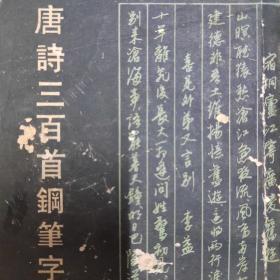 宿桐廬江寄廣陵舊遊
山暝聽猿愁滄江急夜流風鳴兩岸
建德非吾土維揚憶舊遊還將兩行淚
喜見外弟又言別 李益
十年離亂後長大一相逢問姓驚初
別來滄海事語罷暮天鐘明日巴陵
唐詩三百首鋼筆字